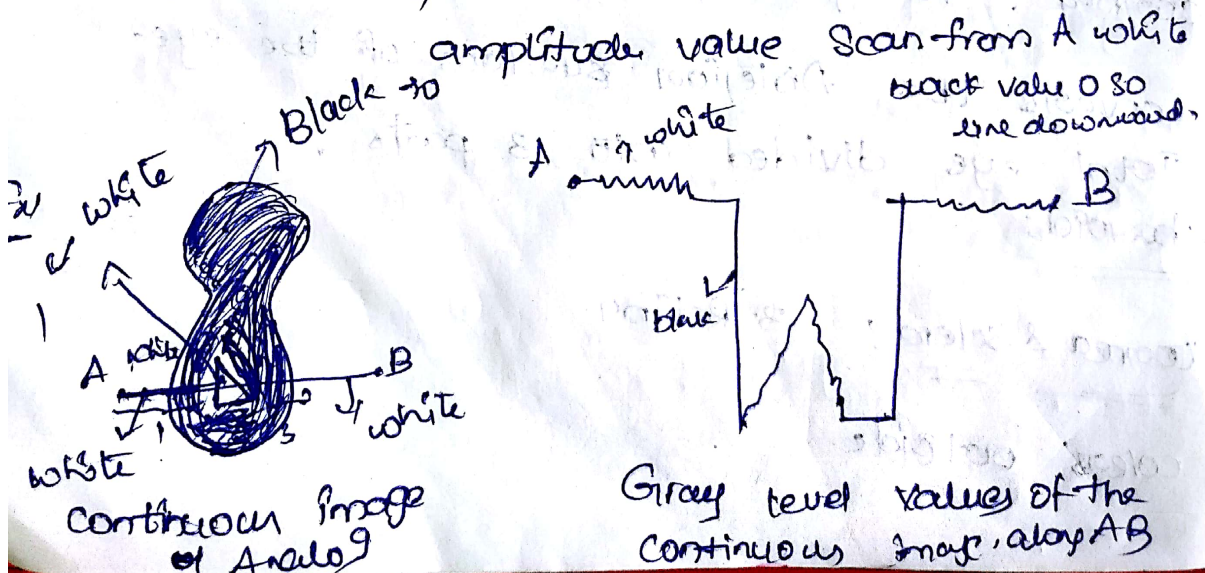 amplitude value Scan from A white
black value 0 so
line downward,
Black → 0
white
A
white
B
white
white
continuous image
Analog
A
white
B
black
Gray level values of the
continuous image, along AB